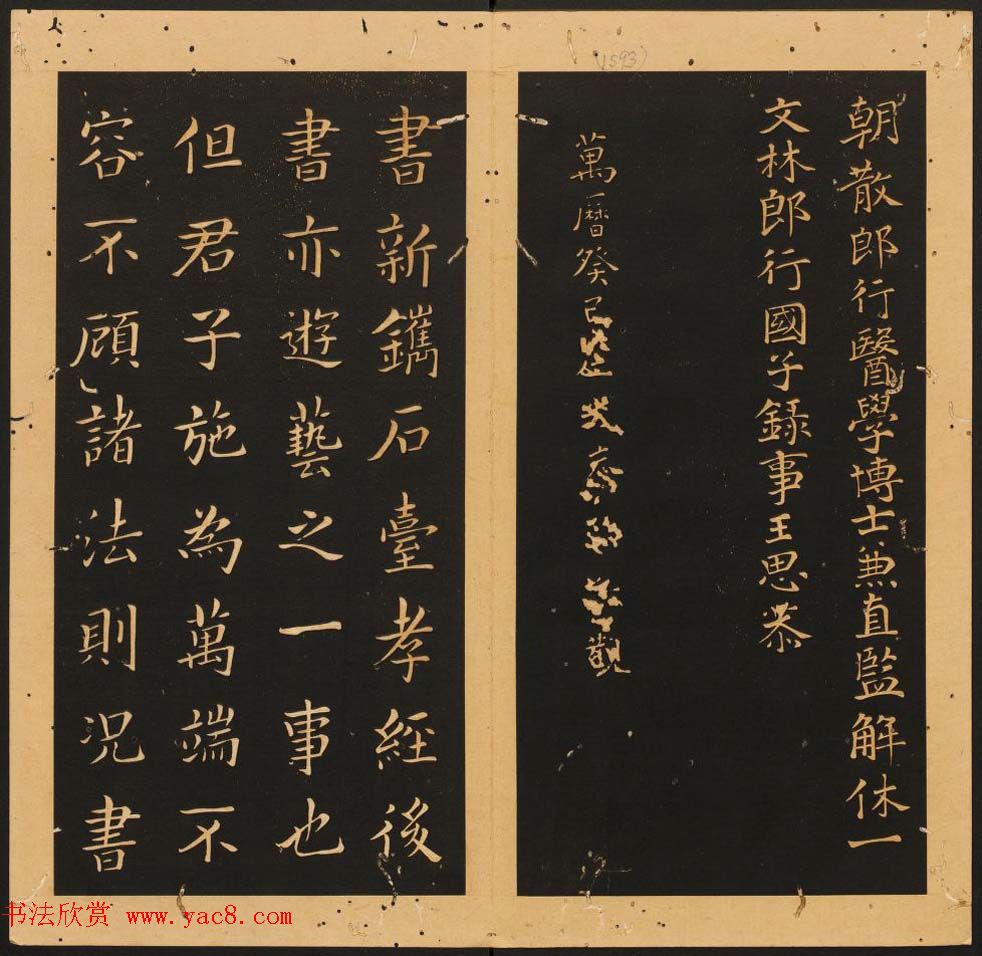 (1593)
朝散郎行醫學博士兼直監解休一
文林郎行國子録事王思恭
萬曆癸巳 觀
書新鐫石臺孝經後
書亦遊藝之一事也
但君子施為萬端不
容不顧諸法則況書
书法欣赏 www.yac8.com